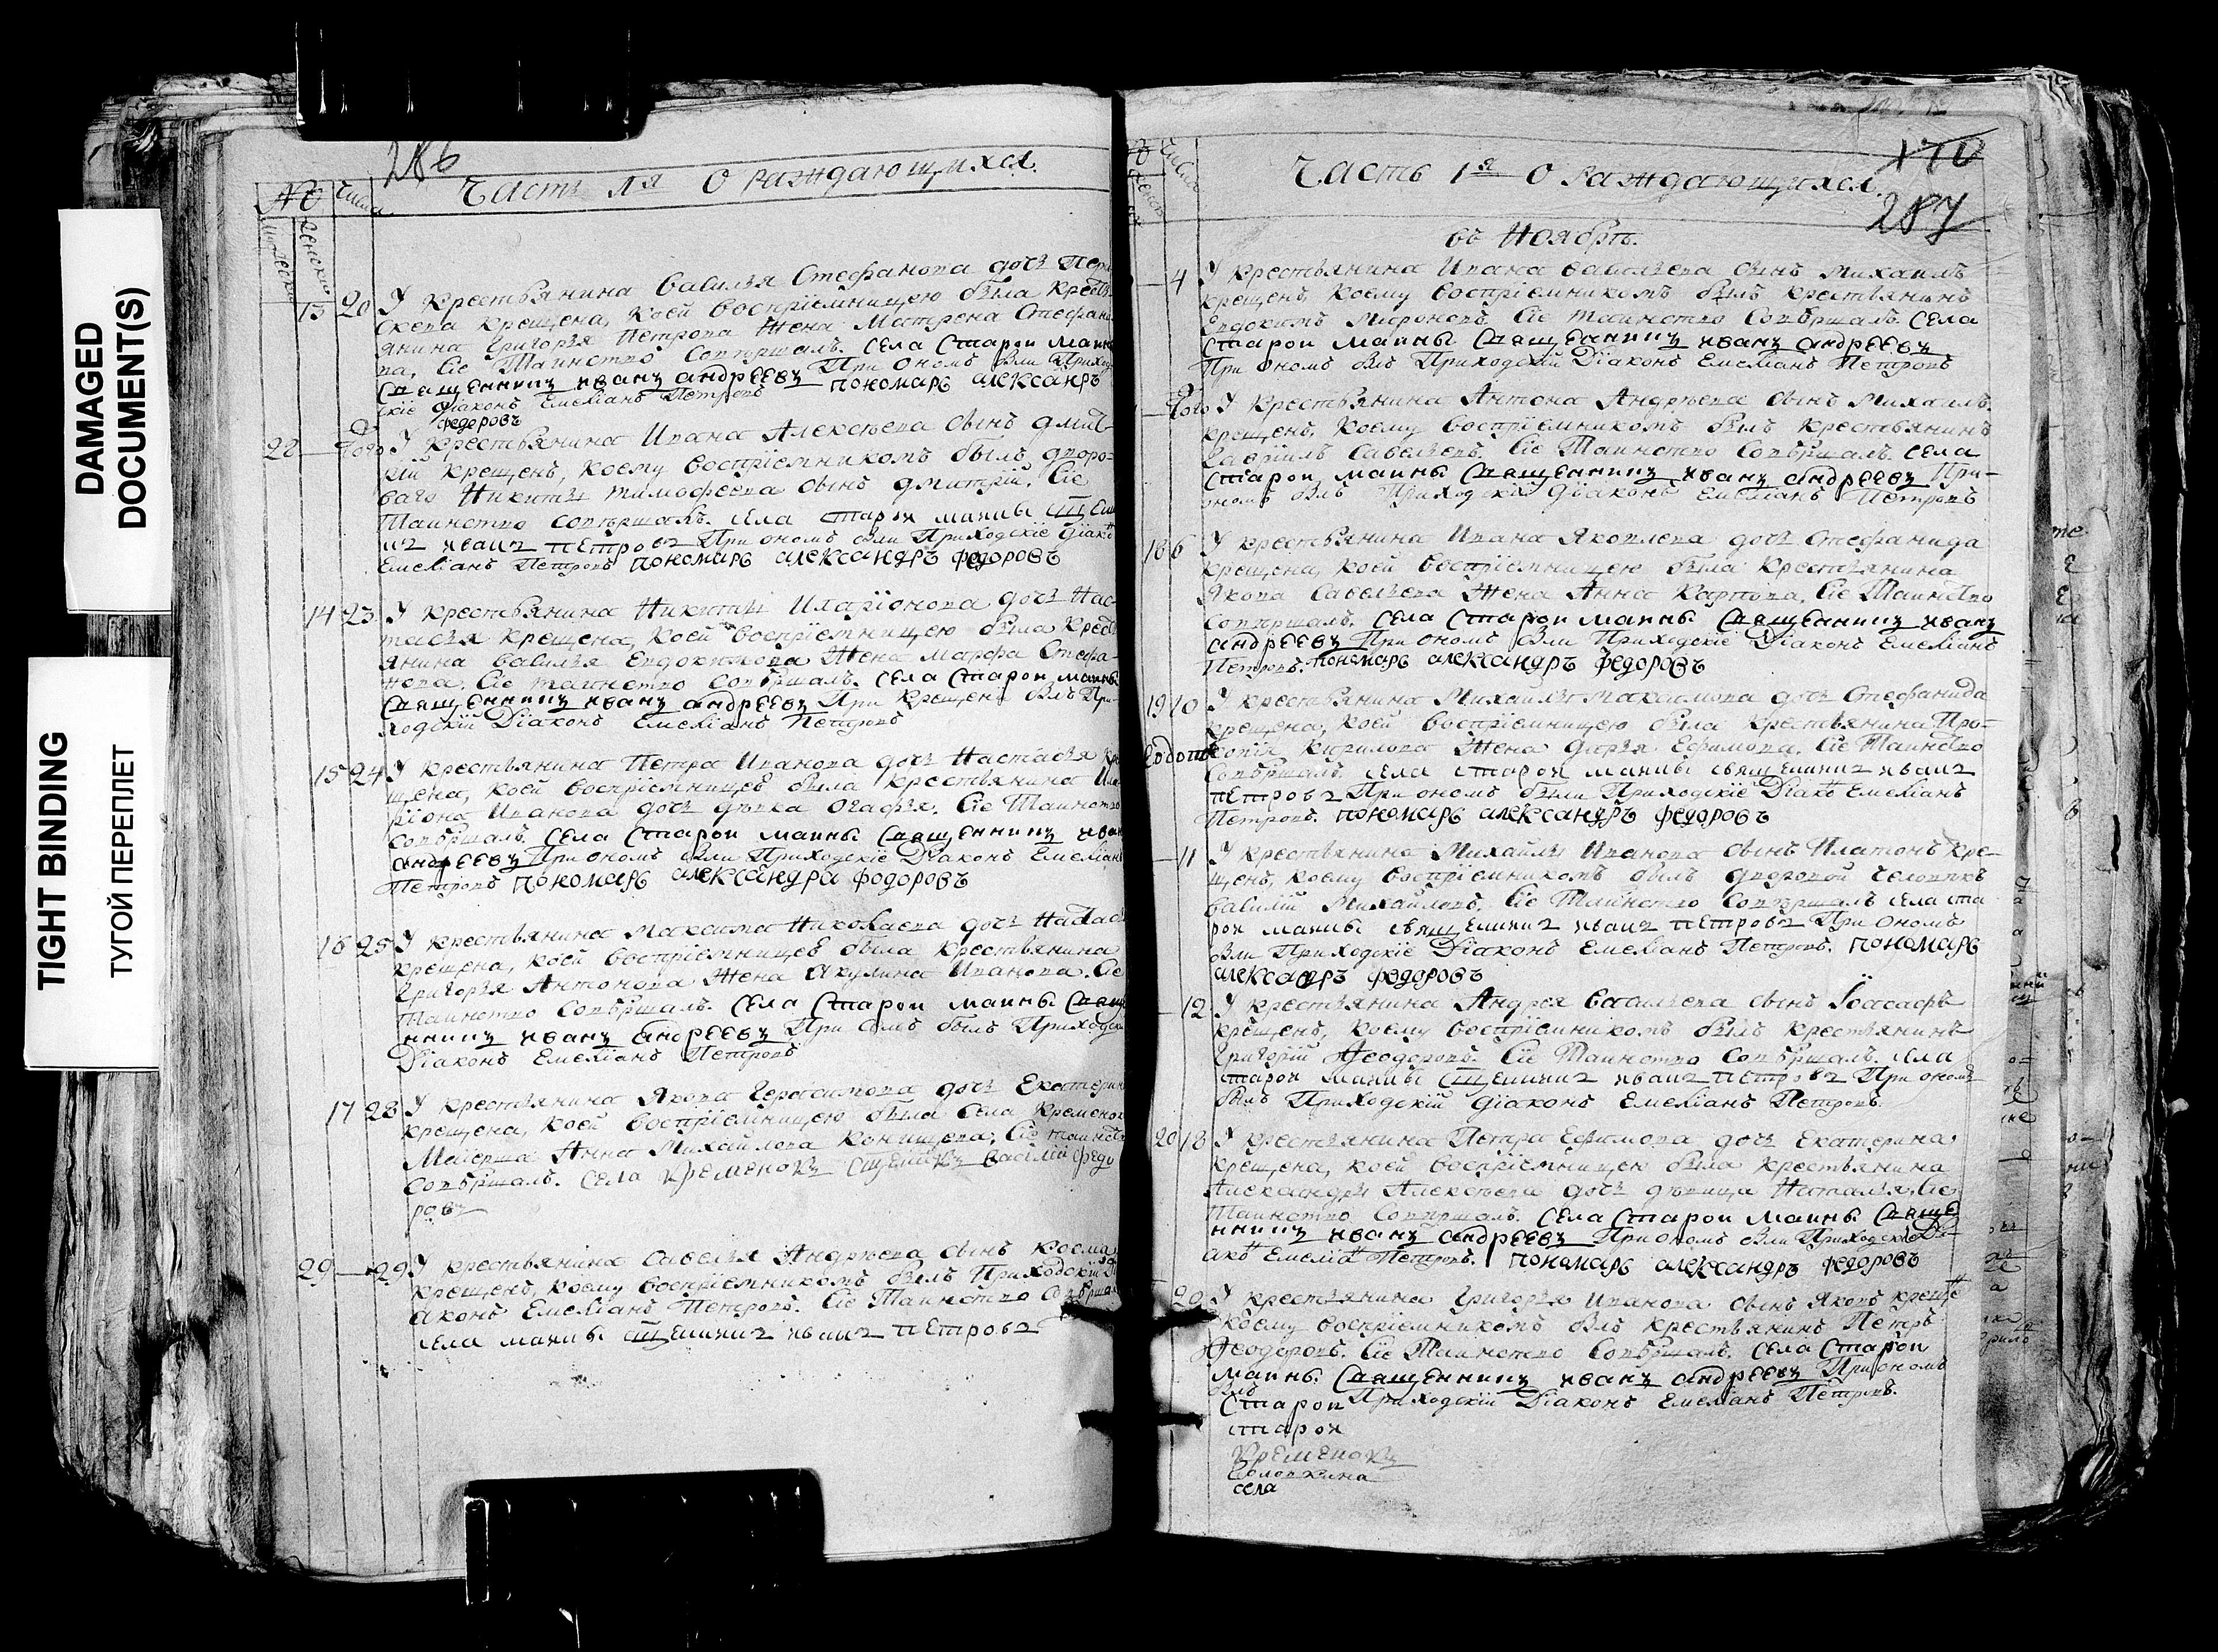 DAMAGED
DOCUMENT(S)
TIGHT BINDING
ТУГОЙ ПЕРЕПЛЕТ
286
№ Числа
Часть 1я О раждающихся.
женска
13 20 У крестьянина Василья Стефанова дочь
крещена, коей восприемницею была крест
янина Григорья Петрова жена Матрена Стефано
ва, Сіе Таинство совершалъ. села Старои маины
Священникъ иванъ андреевъ При ономъ были Приход
скіе діаконъ Емеліанъ Петровъ пономарь александръ
федоровъ
28 — Того У крестьянина Ивана Алексѣева сынъ дмит
рій крещенъ, коему восприемникомъ былъ дворо-
ваго Никиты тимофеева сынъ дмитрій. Сіе
Таинство совершалъ. села старои маины
иванъ петровъ При ономъ были Приходскіе діако
Емеліанъ Петровъ пономарь александръ федоровъ
14 23 У крестьянина Никиты Иларіонова дочь Нас-
тасья крещена, коей восприемницею была крест
янина Василья Евдокимова жена марфа Стефа-
нова. Сіе таинство совершалъ. села Старои маины
Священникъ иванъ андреевъ При крещен былъ При
ходскій Діаконъ Емеліанъ Петровъ
15 24 У крестьянина Петра Иванова дочь Настасья кре
щена, коей восприемницею была крестьянина Ила
ріона Иванова дочь дѣвка Огафья. Сіе Таинство
совершалъ. села Старои маины Священникъ иванъ
андреевъ При ономъ были Приходскіе Діаконъ Емеліанъ
Петровъ пономарь александра фодоровъ
16 25 У крестьянина Максима Николаева дочь Настас
крещена, коей восприемницею была крестьянина
Григорья Антонова жена Акулина Иванова. Сіе
Таинство совершалъ. села Старои маины Свяще
нникъ иванъ андреевъ При семъ былъ Приходск
Діаконъ Емеліанъ Петровъ
17 28 У крестьянина Якова Герасимова дочь Екатерина
крещена, коей восприемницею была села Кременок
Анна Михайлова Сіе таинство
совершалъ. села Кременокъ василій федо
ровъ
29 — 29 У крестьянина Савелья Андрѣева сынъ косма
крещенъ, коему восприемникомъ былъ Приходскій ді
аконъ Емеліанъ Петровъ. Сіе Таинство совершал
села маины иванъ петровъ
Числа
Часть 1я О раждающихся.
287
въ Ноябрѣ.
— 4 У крестьянина Ивана васильева сынъ михаилъ
крещенъ, коему восприемникомъ былъ крестьянинъ
Евдокимъ Миронов. Сіе таинство совершалъ. села
Старои маины Священникъ иванъ андреевъ
При ономъ былъ Приходскій Діаконъ Емеліанъ Петровъ
— Того У крестьянина Антона Андрѣева сынъ михаилъ
крещенъ, коему восприемникомъ былъ крестьянинъ
Гаврилъ Савельевъ. Сіе Таинство совершалъ. села
Старои маины Священникъ иванъ андреевъ При-
ономъ былъ Приходскій діаконъ Емеліанъ Петровъ
18 6 У крестьянина Ивана Яковлева дочь Стефанида
крещена, коей восприемницею была крестьянина
Якова Савельева жена Анна Карпова. Сіе Таинство
совершалъ. села Старои маины Священникъ иванъ
андреевъ При ономъ были Приходскіе Діаконъ Емеліанъ
Петровъ. пономарь александръ федоровъ
19 10 У крестьянина Михайлы максимова дочь Стефанида
крещена, коей восприемницею была крестьянина Про-
копія Кирилова жена дарья Ефимова. Сіе Таинство
совершалъ. села старои маины священникъ иванъ
петровъ При ономъ были Приходскіе Діако Емеліанъ
Петровъ. пономарь александръ федоровъ
— 11 У крестьянина Михайлы Иванова сынъ Платонъ кре-
щенъ, коему восприемникомъ былъ дворовой человекъ
Василій Михайловъ. Сіе Таинство совершалъ села ста
рои маины священникъ иванъ петровъ При ономъ
были Приходскіе Діаконъ Емеліанъ Петровъ. пономарь
александръ федоровъ
— 12 У крестьянина Андрея Васильева сынъ Іоасафъ
крещенъ, коему восприемникомъ былъ крестьянинъ
Григорій Феодоровъ. Сіе Таинство совершалъ. села
старои маины иванъ петровъ При ономъ
былъ Приходскій діаконъ Емеліанъ Петровъ.
20 18 У крестьянина Петра Ефимова дочь Екатерина
крещена, коей восприемницею была крестьянина
Александры Алексѣева дочь дѣвица Наталья. Сіе
Таинство совершалъ. села Старои маины Свяще
нникъ иванъ андреевъ При ономъ были Приходскіе Ді-
акъ Емеліа Петровъ. пономарь александръ федоровъ
20 У крестьянина Григорья Иванова сынъ Яковъ креще
коему восприемникомъ былъ крестьянинъ Петръ
Феодоровъ. Сіе Таинство совершалъ. села Старои
маины Священникъ иванъ андреевъ При ономъ
былъ
Приходскій Діаконъ Емеліанъ Петровъ.
Старои
старои
Кременокъ
села